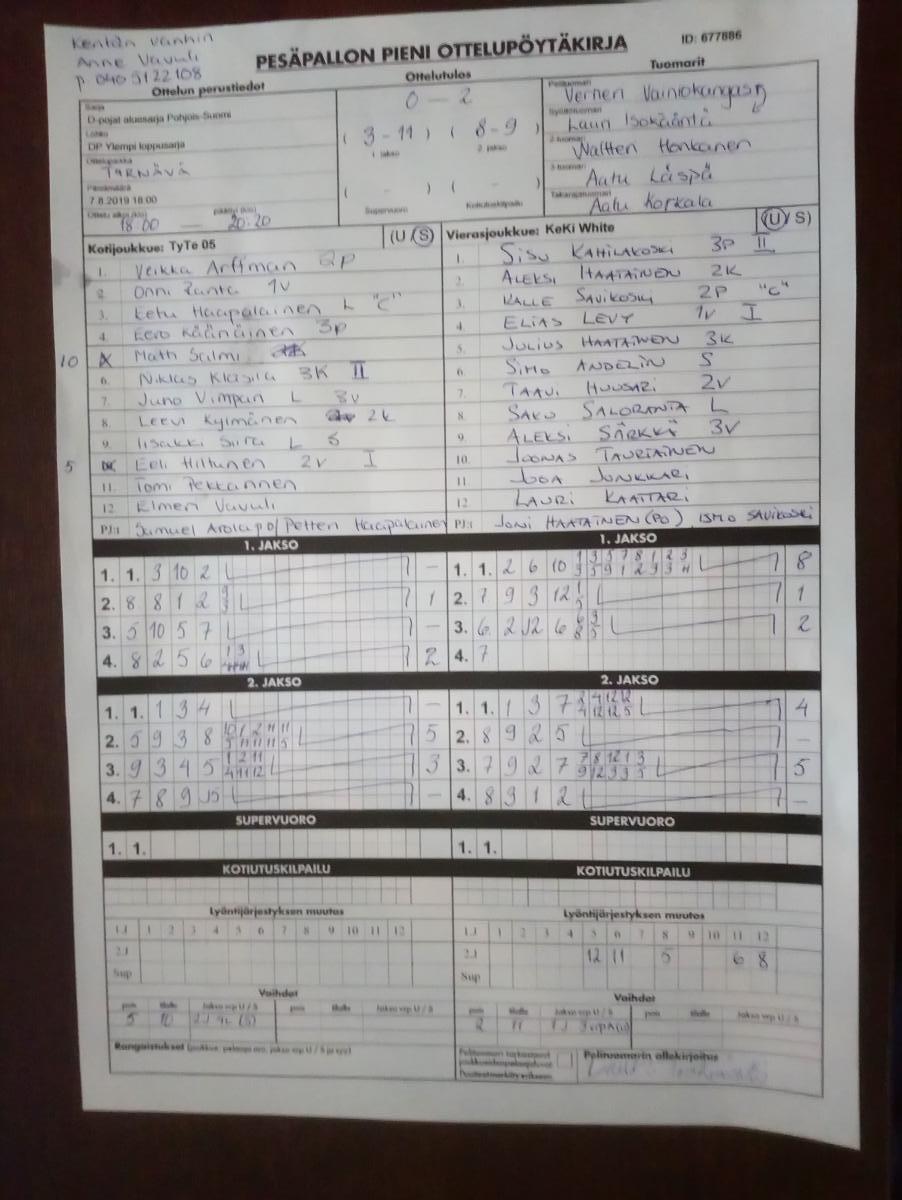 Kentän vanhin
Anne Vavuli
p. 040 5122108
PESÄPALLON PIENI OTTELUPÖYTÄKIRJA
ID: 677886
Ottelun perustiedot
Sarja
D-pojat aluesarja Pohjois-Suomi
Lohko
DP Ylempi loppusarja
Ottelupaikka
TYRNÄVÄ
Päivämäärä
7.8.2019 18:00
Ottelu alkoi (klo) päättyi (klo)
18.00 — 20.20
Ottelutulos
0 - 2
( 3-11 ) ( 8-9 )
1. jakso 2. jakso
( - ) ( - )
Supervuoro Kotiutuskilpailu
Tuomarit
Pelituomari
Verneri Vainiokangas
Syöttötuomari
Lauri Isokääntä
2-tuomari
Waltteri Honkanen
3-tuomari
Aatu Läspä
Takarajatuomari
Aatu Korkala
Kotijoukkue: TyTe 05 (U / S)
1. Veikka Arffman 2p
2. Onni Ranta 1v
3. Eetu Haapalainen L "C"
4. Eero Käänäinen 3p
10 Matti Salmi
6. Niklas Klasila 3K II
7. Juno Vimpari L 3v
8. Leevi Kylmänen 2k
9. Iisakki Siira L S
5 Eeli Hiltunen 2v I
11. Tomi Pekkarinen
12 Elmeri Vavuli
PJ:t Samuel Arolapo/Petteri Haapalainen
Vierasjoukkue: KeKi White (U / S)
1. SISU KAHILAKOSKI 3P II
2. ALEKSI HAATAINEN 2K
3. KALLE SAVIKOSKI 2P "C"
4. ELIAS LEVY 1V I
5. JULIUS HAATAINEN 3K
6. SIMO ANDELIN S
7. TAAVI HUUSARI 2V
8. SAKU SALORANTA L
9. ALEKSI SÄRKKÄ 3V
10. JOONAS TAURIAINEN
11. JOOA JUNKKARI
12 LAURI KAATTARI
PJ:t JONI HAATAINEN (PO), ISMO SAVIKOSKI
1. JAKSO
1. 1. 3 10 2 -
2. 8 8 1 2 1
3. 5 10 5 7 -
4. 8 2 5 6 2
1. JAKSO
1. 1. 2 6 10 8
2. 7 9 3 12 1
3. 6 2 12 6 2
4. 7
2. JAKSO
1. 1. 1 3 4 -
2. 5 9 3 8 5
3. 9 3 4 5 3
4. 7 8 9 15 -
2. JAKSO
1. 1. 1 3 7 4
2. 8 9 2 5 -
3. 7 9 2 7 5
4. 8 3 1 2 -
SUPERVUORO
1. 1.
SUPERVUORO
1. 1.
KOTIUTUSKILPAILU
KOTIUTUSKILPAILU
Lyöntijärjestyksen muutos
1.J 1 2 3 4 5 6 7 8 9 10 11 12
2.J
Sup
Lyöntijärjestyksen muutos
1.J 1 2 3 4 5 6 7 8 9 10 11 12
2.J 12 11 5 6 8
Sup
Vaihdot
pois tilalle Jakso vrp U / S pois tilalle Jakso vrp U / S
5 10
Vaihdot
pois tilalle Jakso vrp U / S pois tilalle Jakso vrp U / S
2 11
Rangaistukset
Pelituomarin allekirjoitus